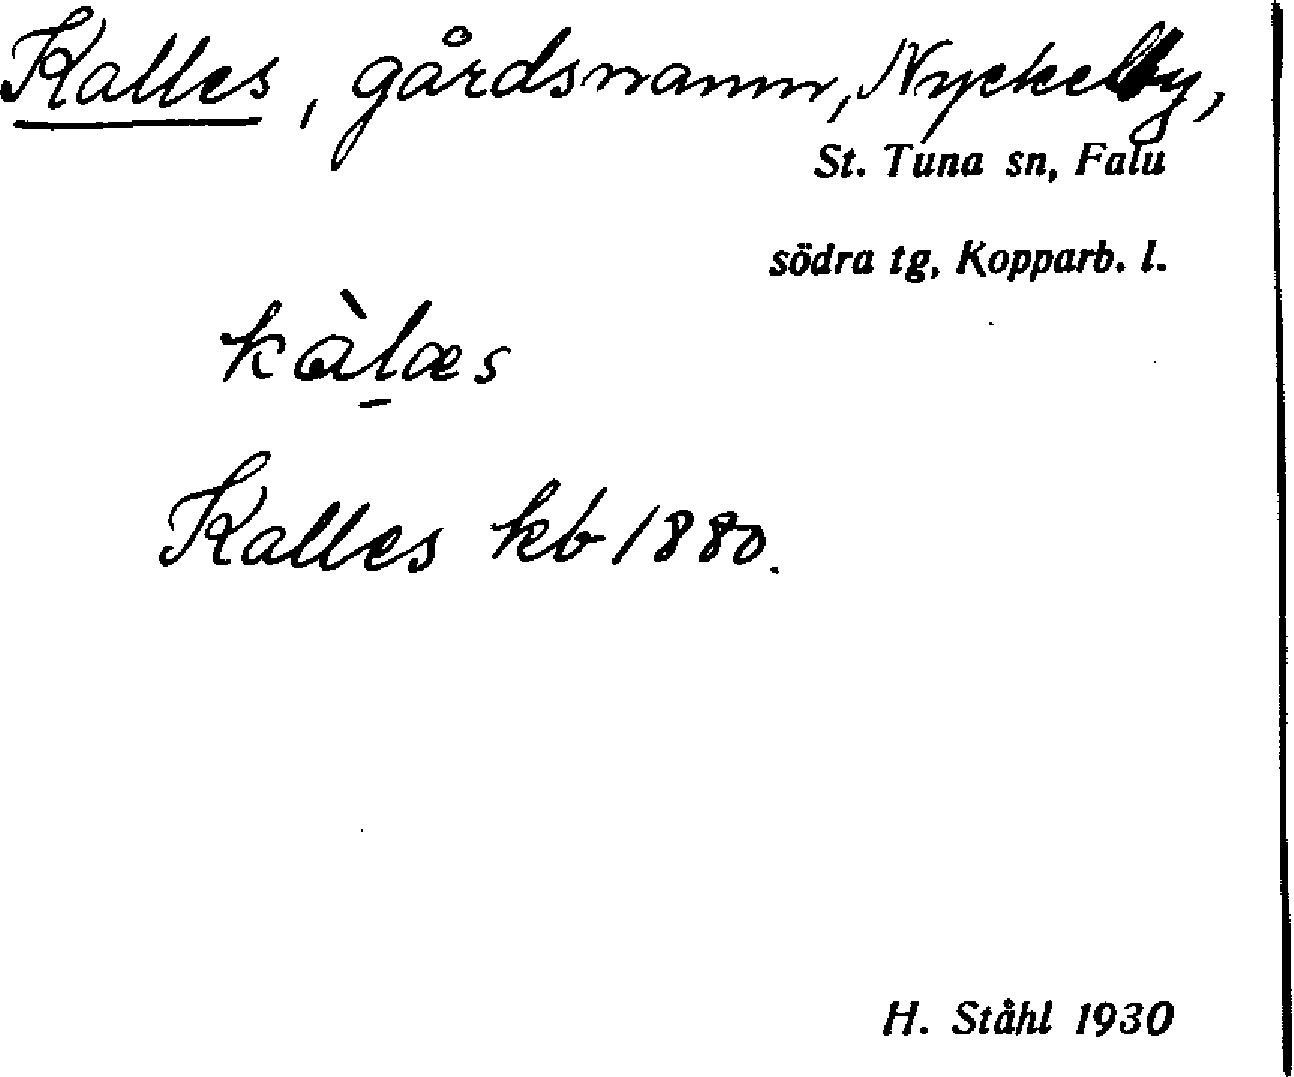 Kalles, gårdsnamn, Nyckelby,
St. Tuna sn, Falu
södra tg, Kopparb. l.
kàlæs
Kalles kb 1880.
H. Ståhl 1930